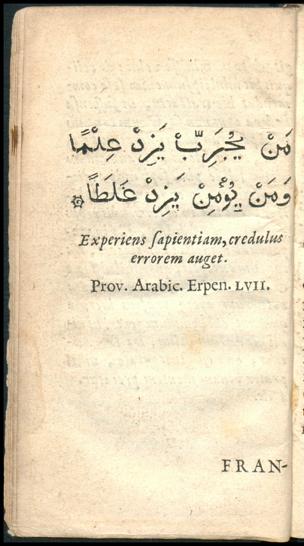 مَنْ يُجَرِّبْ يَزِدْ عِلْمًا
وَمَنْ يُؤْمِنْ يَزِدْ غَلَطًا
Experiens ſapientiam, credulus
errorem auget.
Prov. Arabic. Erpen. LVII.
FRAN-